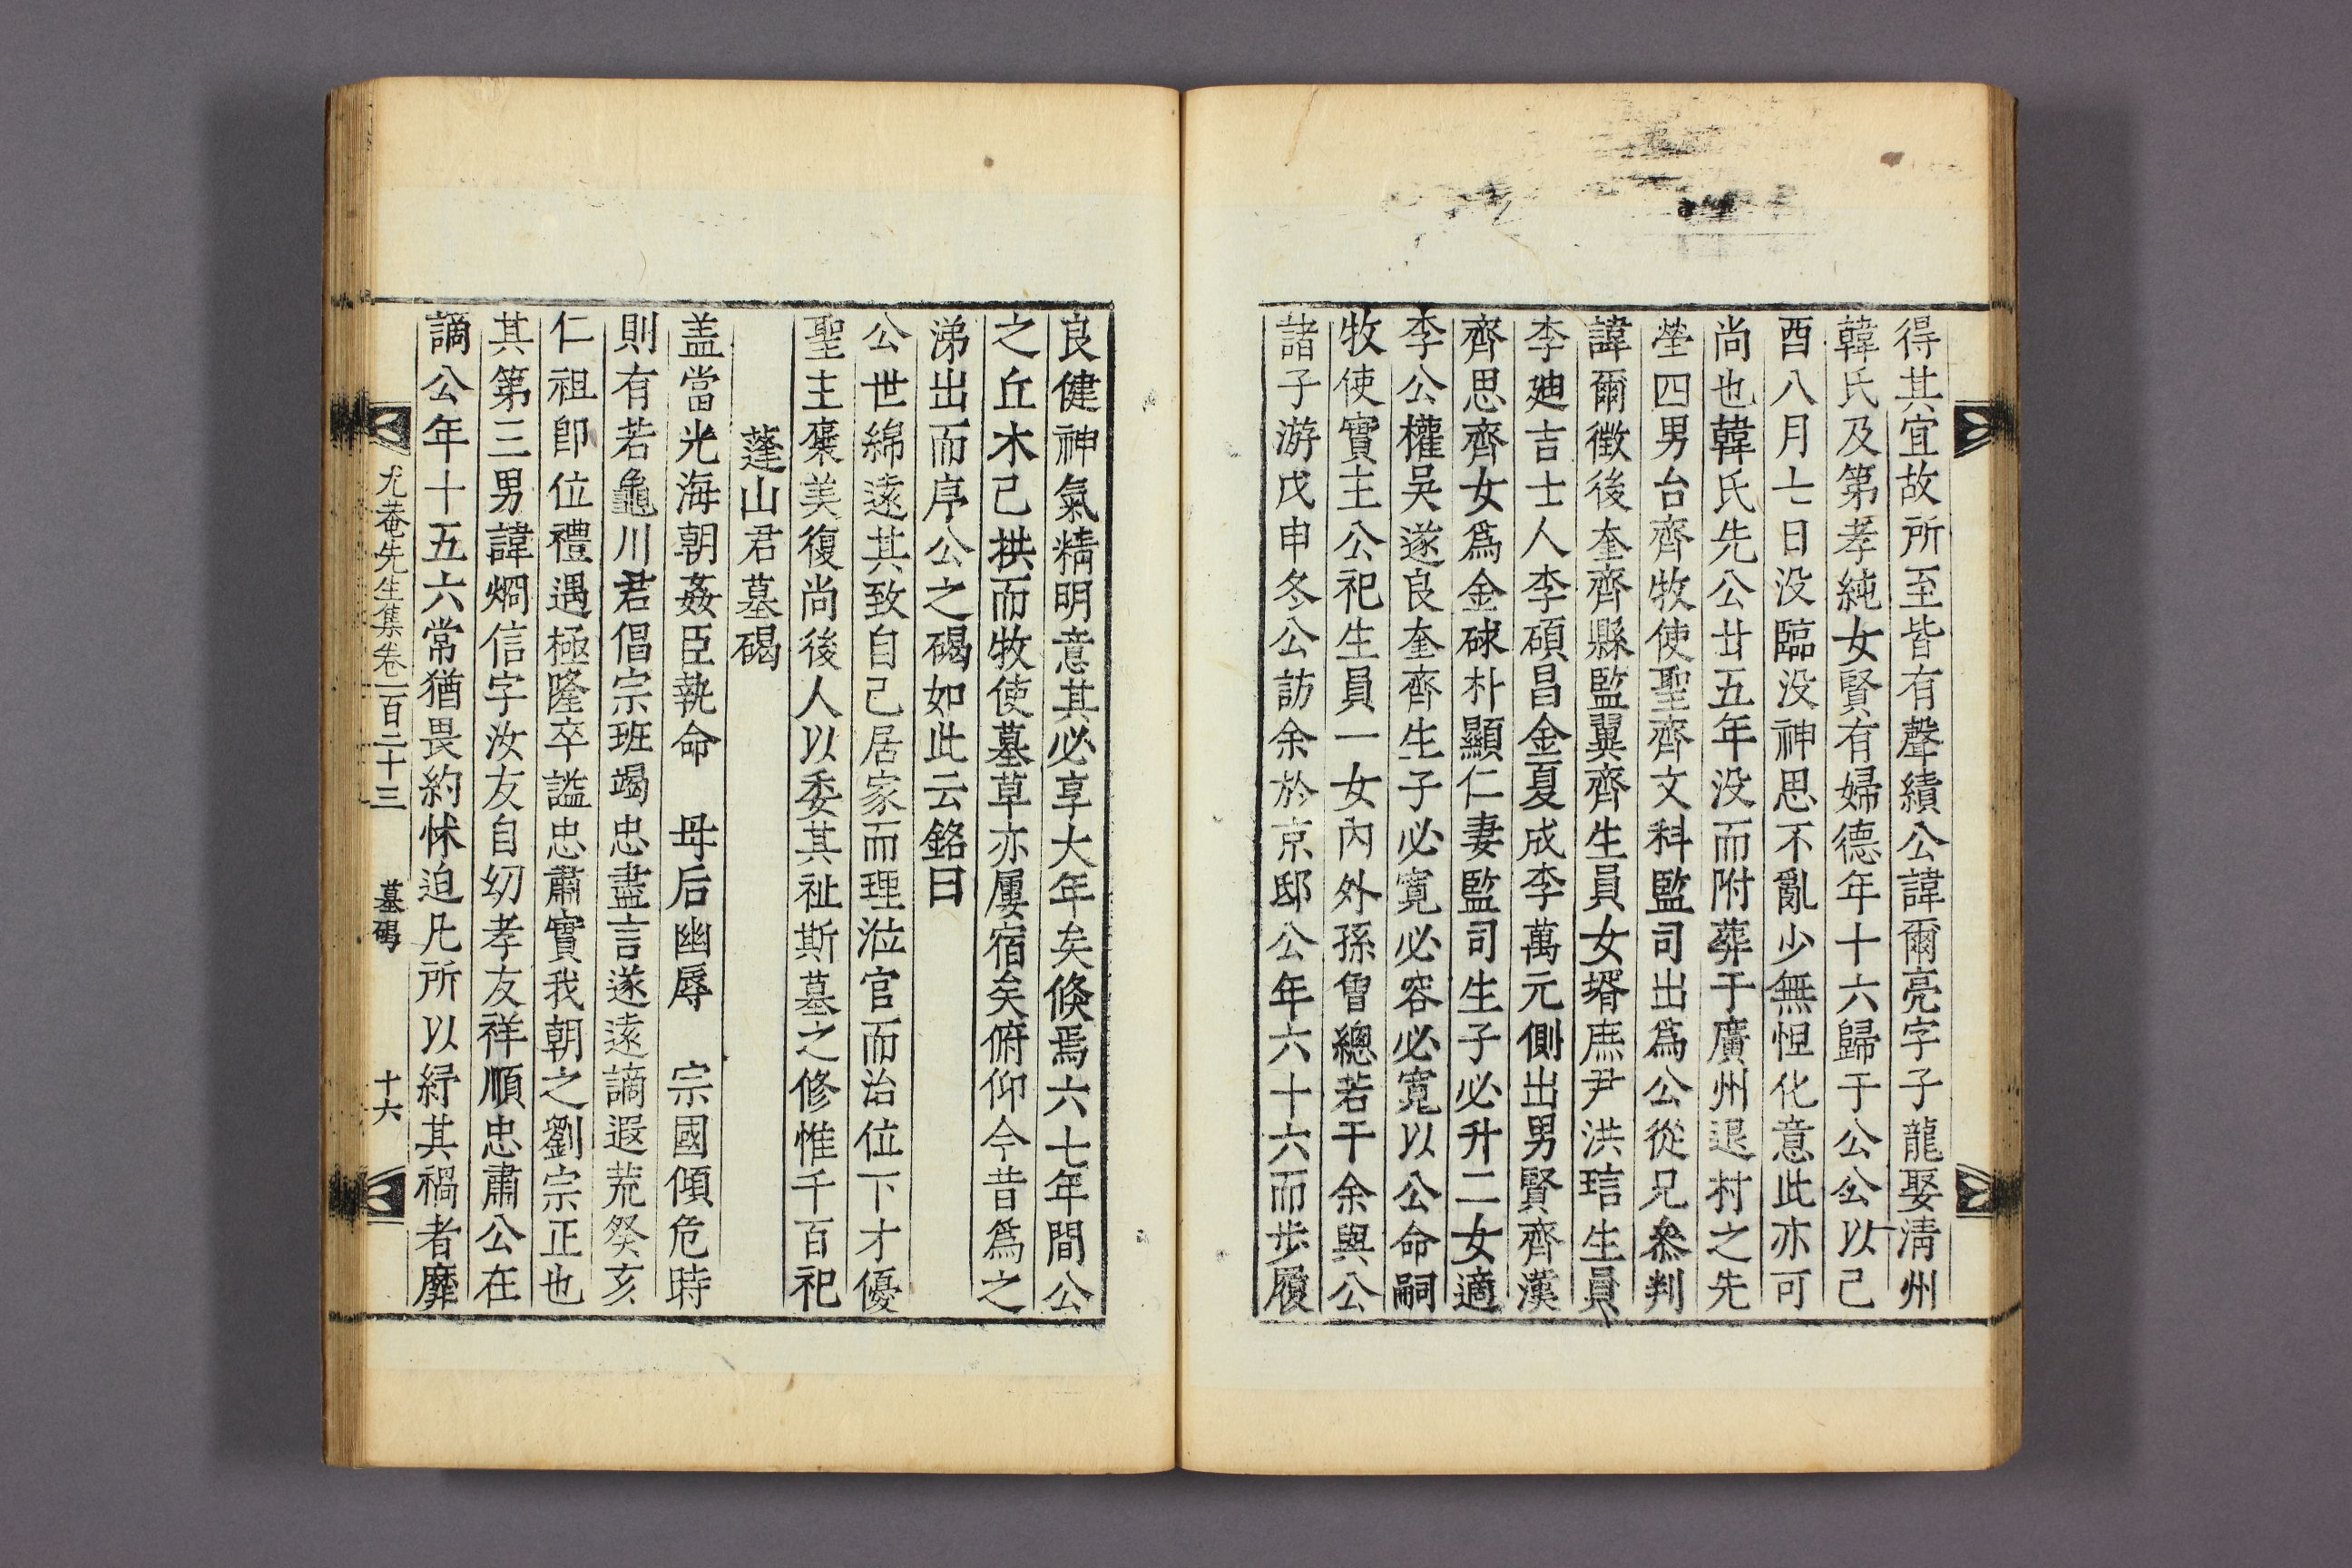 得其宜故所至皆有聲績公諱爾亮字子龍娶淸州
韓氏及第孝純女賢有婦德年十六歸于公公以己
酉八月七日没臨没神思不亂少無怛化意此亦可
尚也韓氏先公廿五年没而附葬于廣州退村之先
塋四男台齊牧使聖齊文科監司出爲公從兄叅判
諱爾徵後奎齊縣監翼齊生員女壻庶尹洪琂生員
李廸吉士人李碩昌金夏成李萬元側出男賢齊漢
齊思齊女爲金硣朴顯仁妻監司生子必升二女適
李公權吳遂良奎齊生子必寬必容必寬以公命嗣
牧使實主公祀生員一女內外孫曾總若干余與公
諸子游戊申冬公訪余於京邸公年六十六而步履
良健神氣精明意其必享大年矣倐焉六七年間公
之丘木己拱而牧使墓草亦屢宿矣俯仰今昔爲之
涕出而序公之碣如此云銘曰
公世綿遠其致自己居家而理涖官而治位下才優
聖主褒美復尚後人以委其祉斯墓之修惟千百祀
蓬山君墓碣
盖當光海朝姦臣執命 母后幽辱 宗國傾危時
則有若龜川君倡宗班竭忠盡言遂遠謫遐荒癸亥
仁祖卽位禮遇極隆卒謚忠肅實我朝之劉宗正也
其第三男諱炯信字汝友自幼孝友祥順忠肅公在
謫公年十五六常猶畏約怵迫凡所以紓其禍者靡
尤菴先生集卷一百二十三 墓碣 十六